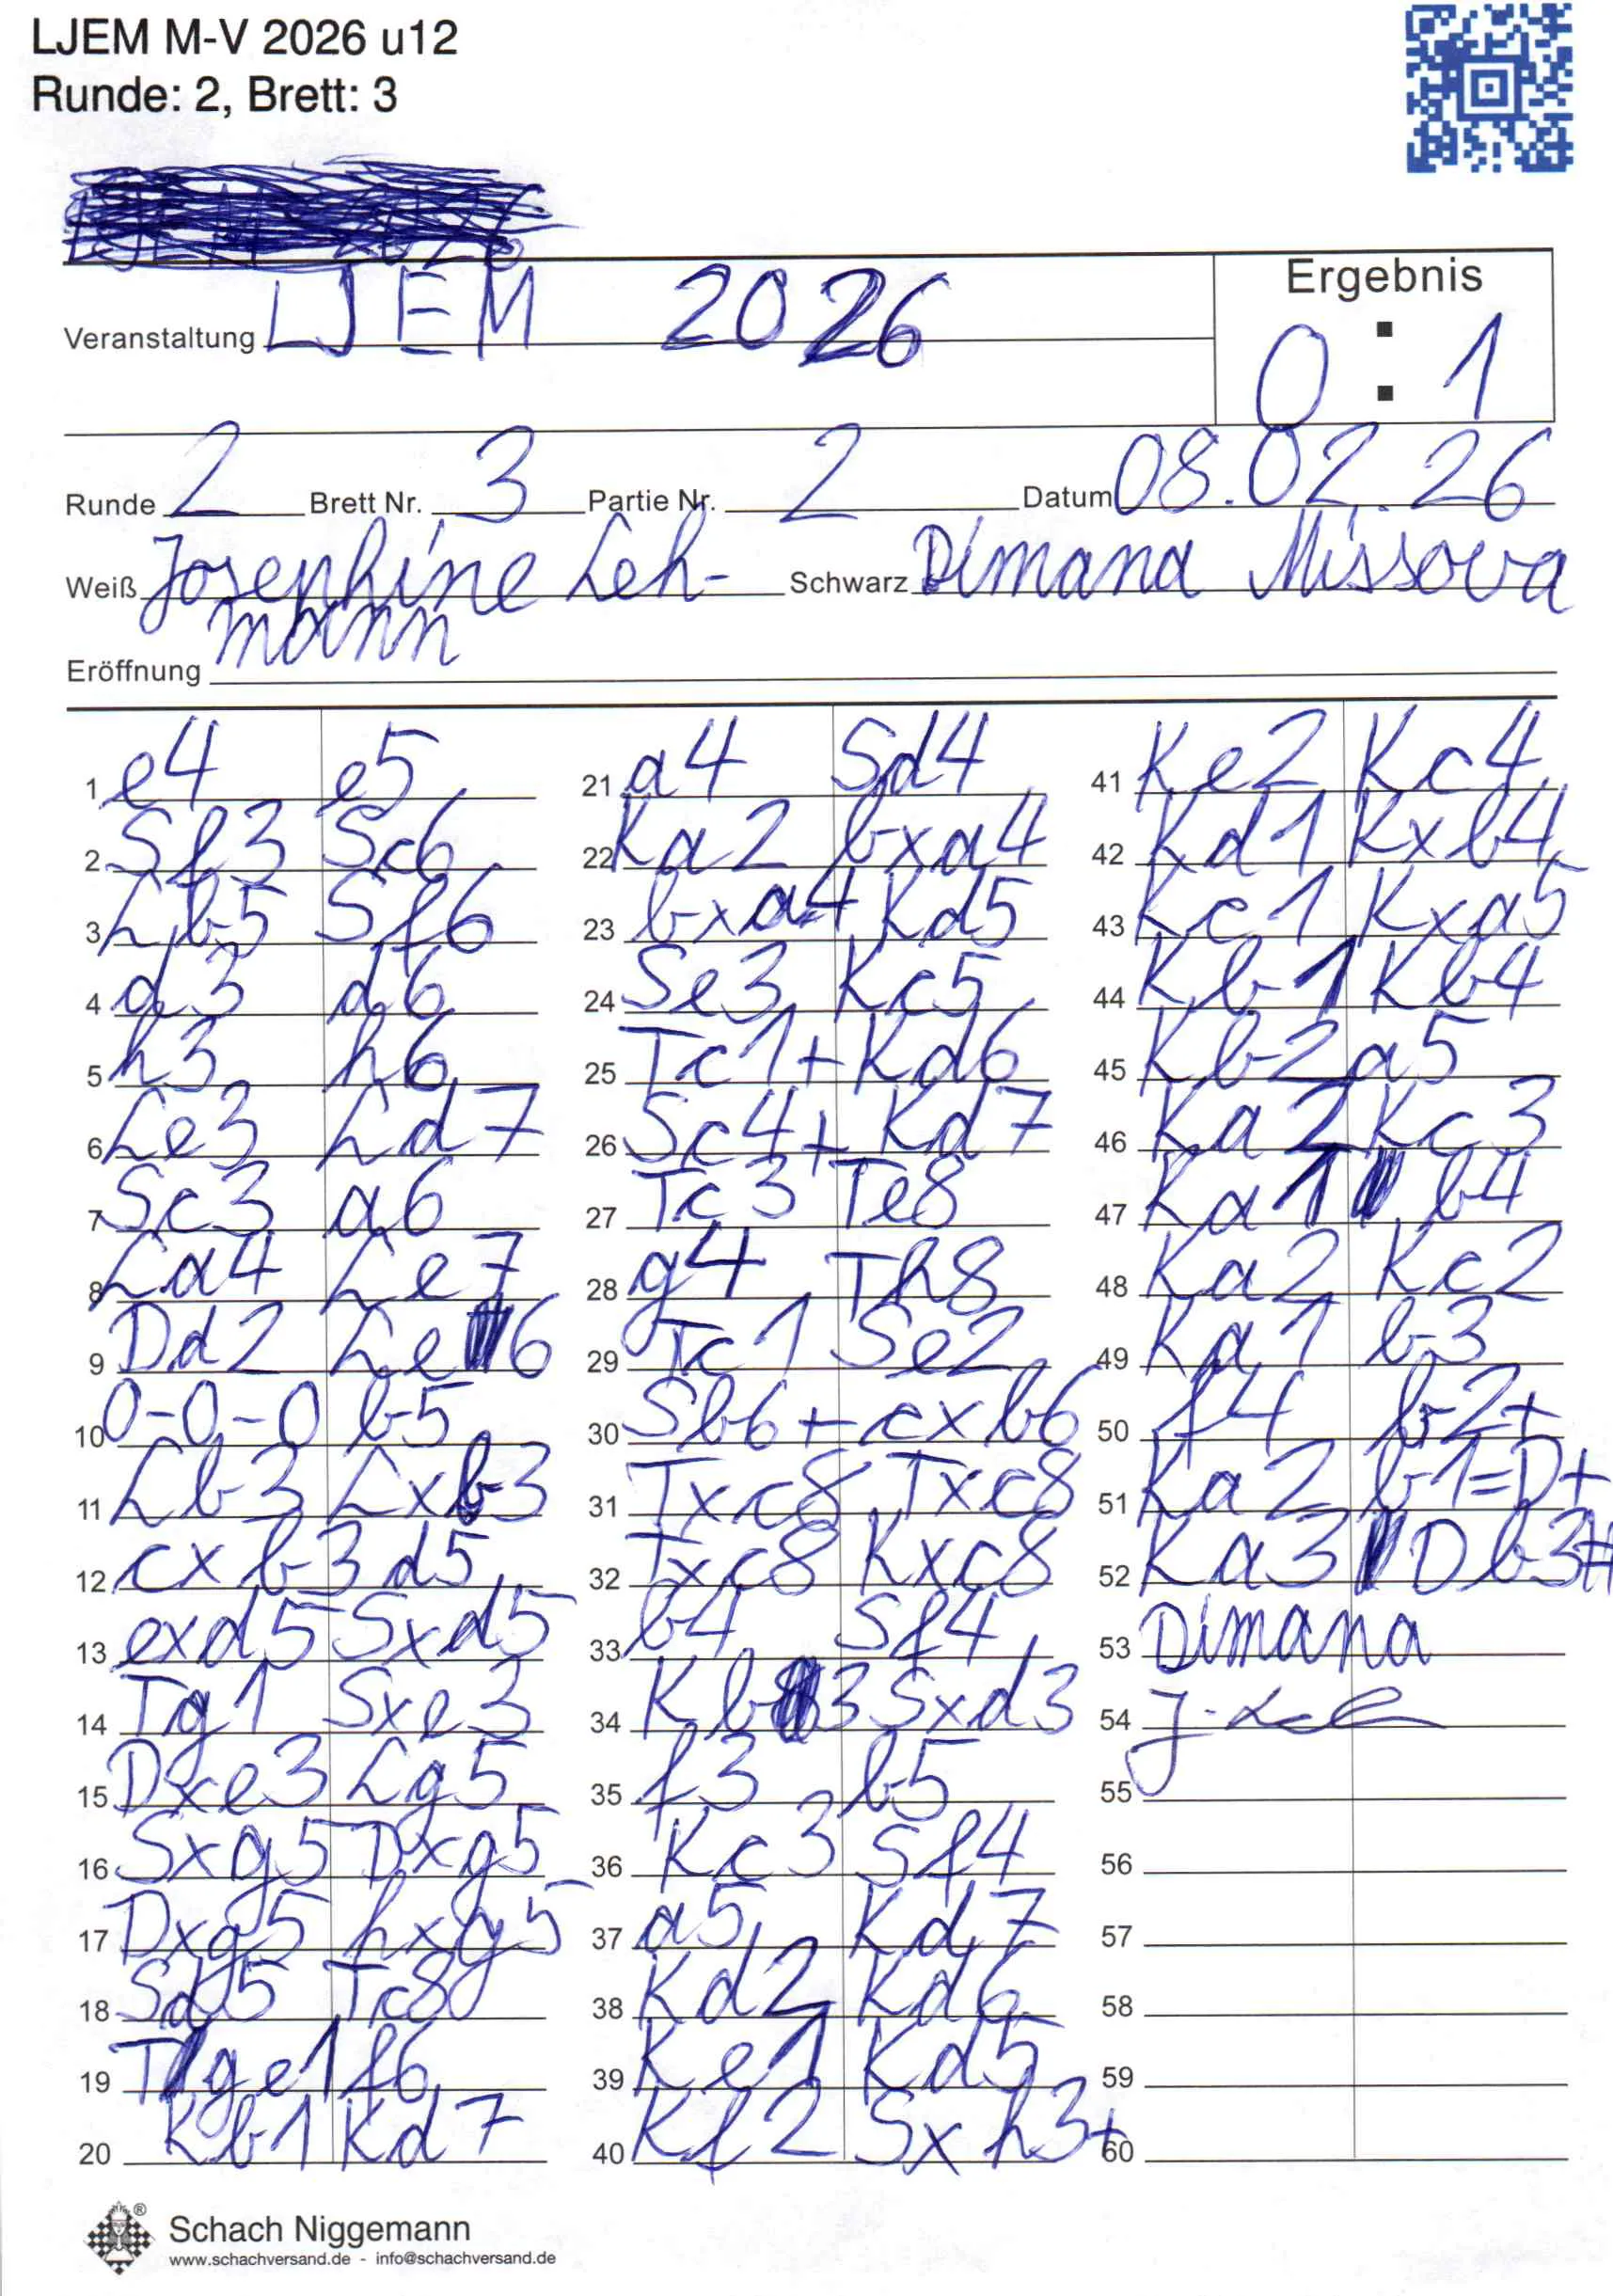 LJEM M-V 2026 u12
Runde: 2, Brett: 3
Ergebnis
Veranstaltung LJEM 2026
0 : 1
Runde 2 Brett Nr. 3 Partie Nr. 2 Datum 08.02.26
Weiß Josephine Leh- Schwarz Dimana Missova
mann
Eröffnung
1 e4 e5
2 Sf3 Sc6
3 Lb5 Sf6
4 d3 d6
5 h3 h6
6 Le3 Ld7
7 Sc3 a6
8 La4 Le7
9 Dd2 Le6
10 0-0-0 b5
11 Lb3 Lxb3
12 cxb3 d5
13 exd5 Sxd5
14 Tg1 Sxe3
15 Dxe3 Lg5
16 Sxg5 Dxg5
17 Dxg5 hxg5
18 Sd5 Tc8
19 Tge1 f6
20 Kb1 Kd7
21 a4 Sd4
22 Ka2 bxa4
23 bxa4 Kd5
24 Se3 Kc5
25 Tc1+ Kd6
26 Sc4+ Kd7
27 Tc3 Te8
28 g4 Th8
29 Tc1 Se2
30 Sb6+ cxb6
31 Txc8 Txc8
32 Txc8 Kxc8
33 b4 Sf4
34 Kb3 Sxd3
35 f3 b5
36 Kc3 Sf4
37 a5 Kd7
38 Kd2 Kd6
39 Ke1 Kd5
40 Kf2 Sxh3+
41 Ke2 Kc4
42 Kd1 Kxb4
43 Kc1 Kxa5
44 Kb1 Kb4
45 Kb2 a5
46 Ka2 Kc3
47 Ka1 b4
48 Ka2 Kc2
49 Ka1 b3
50 f4 b2+
51 Ka2 b1=D+
52 Ka3 Db3#
53 Dimana
54
55
56
57
58
59
60
Schach Niggemann
www.schachversand.de - info@schachversand.de